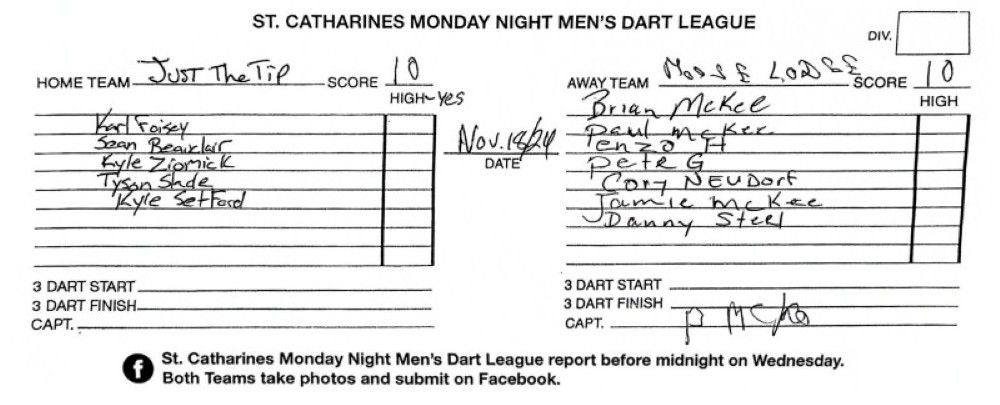 ST. CATHARINES MONDAY NIGHT MEN'S DART LEAGUE
DIV.
HOME TEAM JUST The Tip SCORE 10
HIGH-yes
AWAY TEAM MOOSE LODGE SCORE 10
HIGH
Karl Foisey
Sean Beauclair
Kyle Ziomick
Tyson Slade
Kyle Setford
Nov. 18/24
DATE
Brian McKee
Paul McKee
Enzo H
Pete G
Cory NEUDorf
Jamie McKee
Danny Steel
3 DART START
3 DART FINISH
CAPT.
3 DART START
3 DART FINISH
CAPT. P McKee
f St. Catharines Monday Night Men's Dart League report before midnight on Wednesday.
Both Teams take photos and submit on Facebook.